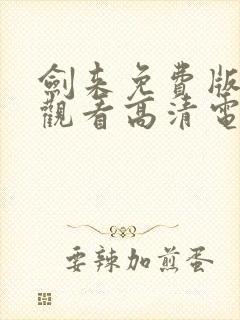 劍来免費版
觀看高清電
要辣加煎蛋